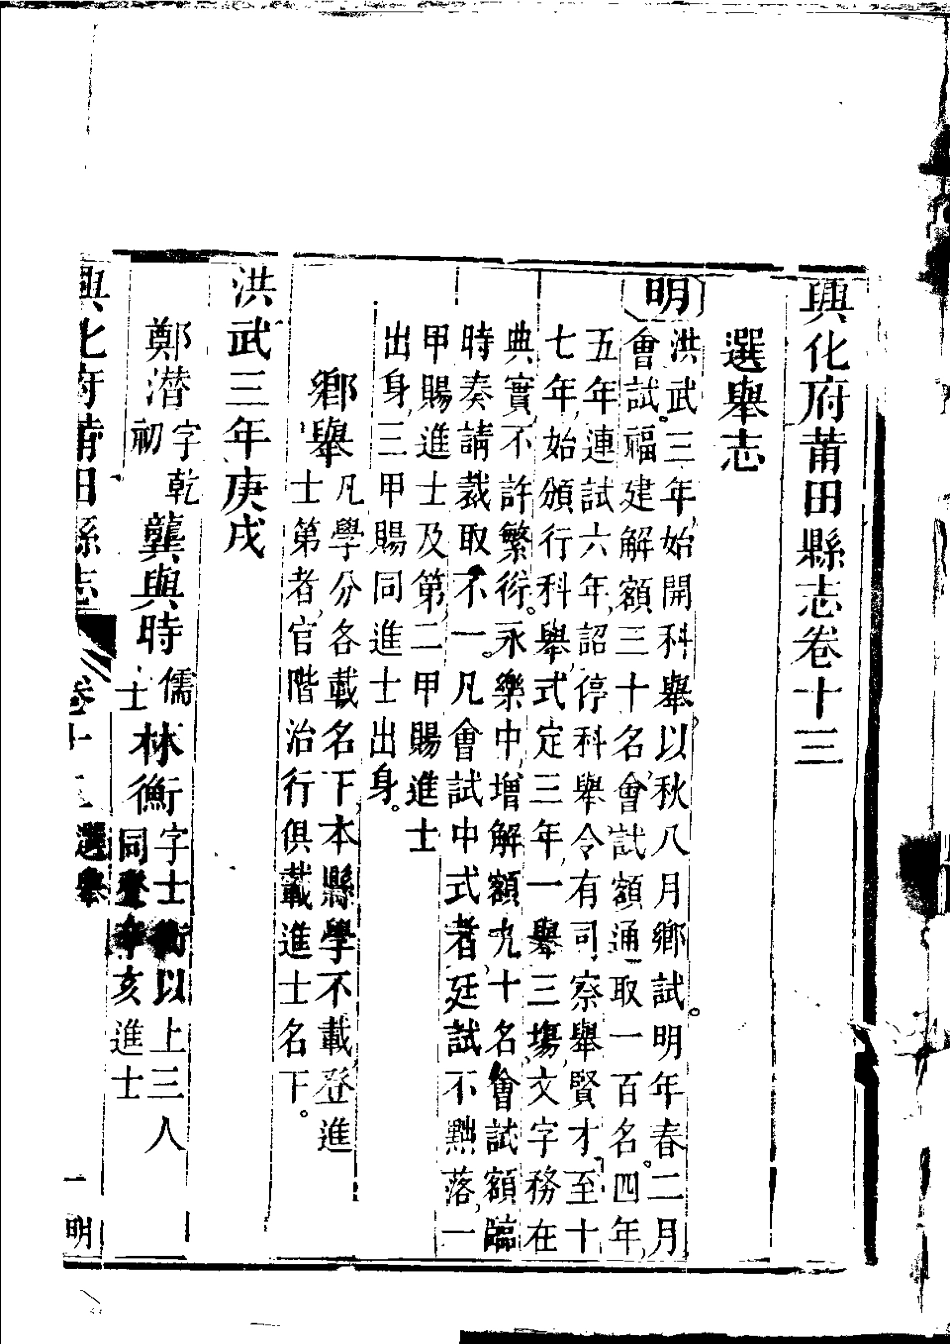 興化府莆田縣志卷十三
選舉志
明
洪武三年始開科舉以秋八月鄉試明年春二月
會試福建解額三十名會試額通取一百名四年
五年連試六年詔停科舉令有司察舉賢才至十
七年始頒行科舉式定三年一舉三塲文字務在
典實不許繁衍永樂中增解額九十名會試額臨
時奏請裁取不一凡會試中式者廷試不黜落一
甲賜進士及第二甲賜進士
出身三甲賜同進士出身
鄉舉凡學分各載名下本縣學不載登進
士第者官階治行俱載進士名下
洪武三年庚戌
鄭潛字乾初 龔與時儒士 林衡字士衡以上三人同登辛亥進士
興化府莆田縣志 卷十三 選舉 一 明